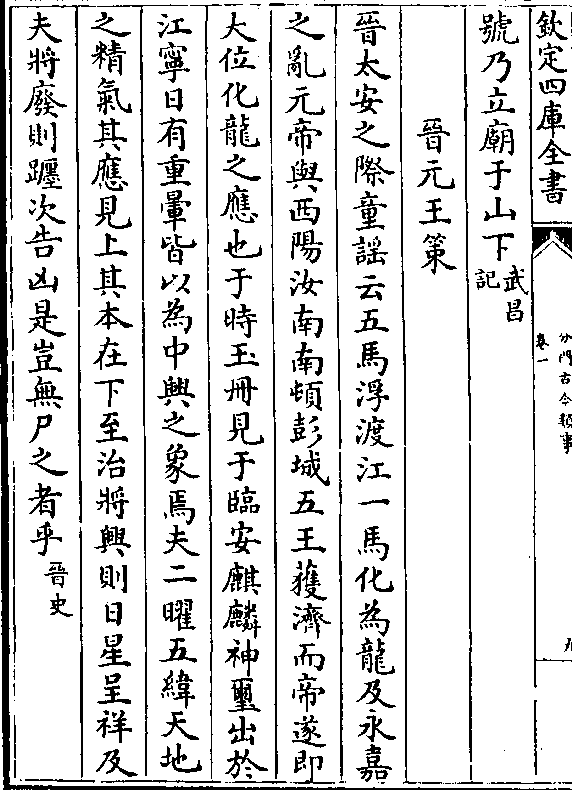 欽定四庫全書
分門古今類事
卷一
九
號乃立廟于山下武昌
記
晉元王策
晉太安之際童謡云五馬浮渡江一馬化為龍及永嘉
之亂元帝與西陽汝南南頓彭城五王獲濟而帝遂即
大位化龍之應也于時玉冊見于臨安麒麟神璽出於
江寧日有重暈皆以為中興之象焉夫二曜五緯天地
之精氣其應見上其本在下至治將興則日星呈祥及
夫將廢則躔次告凶是豈無尸之者乎晉史